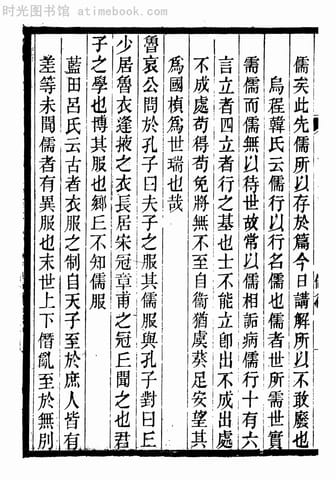 时光图书馆 atimebook.com
儒矣此先儒所以存於篇今日講解所以不敢廢也
烏程韓氏云儒行以行名儒也儒者世所需世實
需儒而儒無以待世故常以儒相詬病儒行十有六
言立者四立者行之基也士不能立卽出不成出處
不成處苟得苟免將無不至自衞猶虞葵足安望其
爲國楨爲世瑞也哉
魯哀公問於孔子曰夫子之服其儒服與孔子對曰丘
少居魯衣逢掖之衣長居宋冠章甫之冠丘聞之也君
子之學也博其服也鄕丘不知儒服
藍田呂氏云古者衣服之制自天子至於庶人皆有
差等未聞儒者有異服也末世上下僭亂至於無別